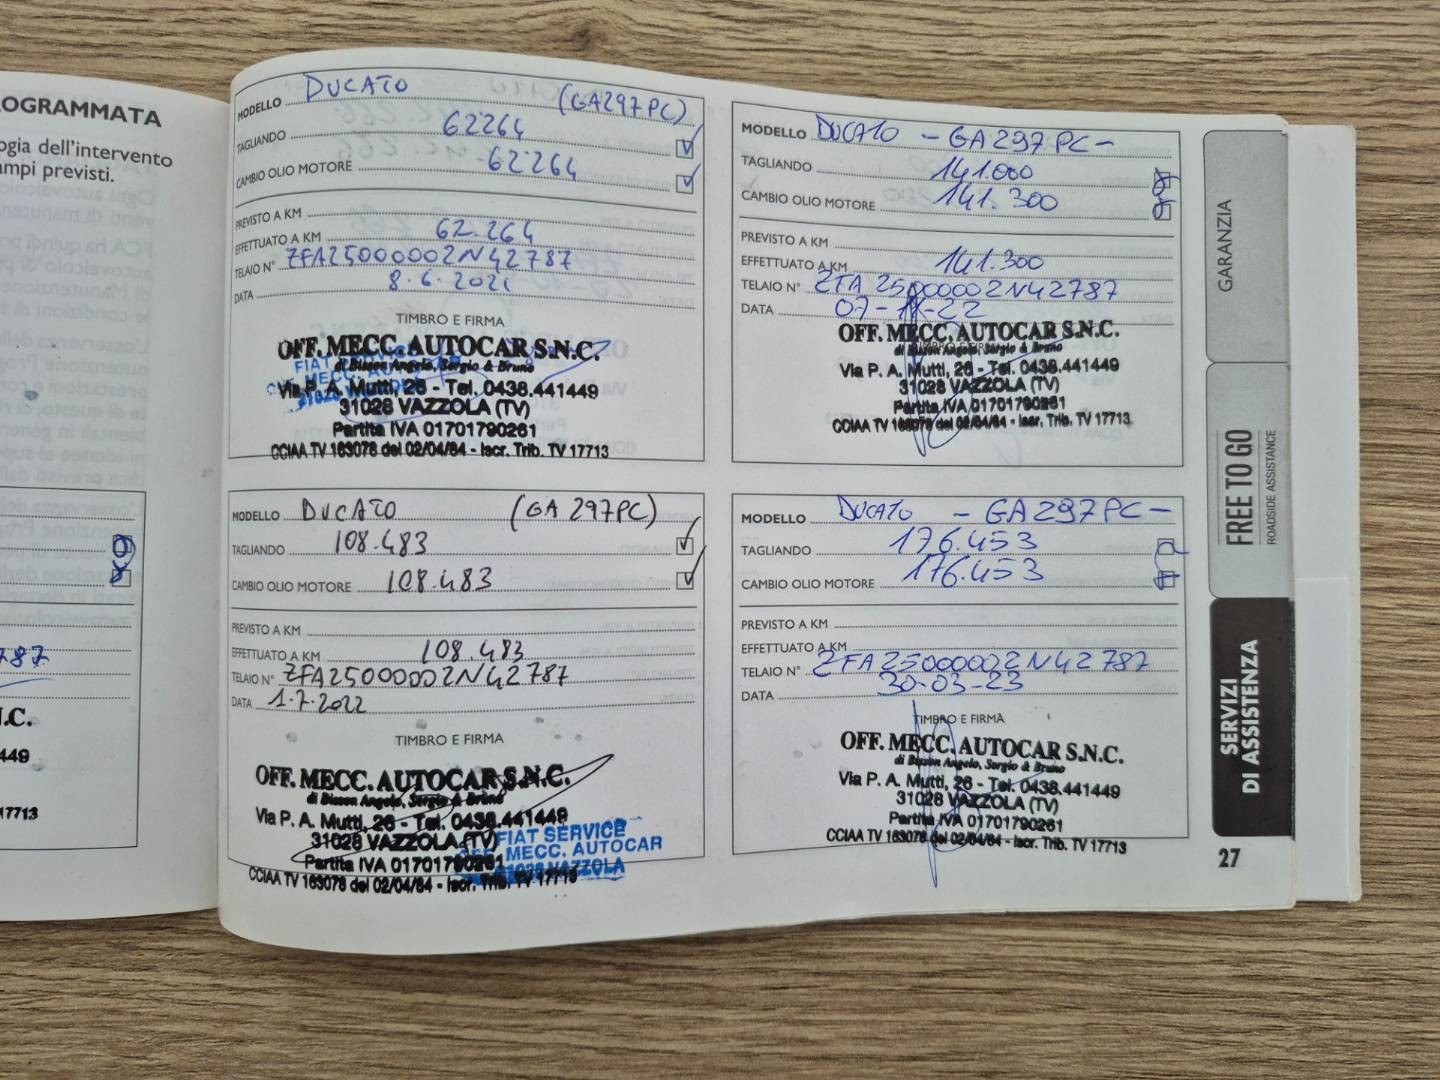 OGRAMMATA
ogia dell'intervento
ampi previsti.
787
N.C.
449
17713
MODELLO DUCATO (GA297PC)
TAGLIANDO 62264
CAMBIO OLIO MOTORE 62264
PREVISTO A KM
EFFETTUATO A KM 62.264
TELAIO N° ZFA25000002N42787
DATA 8.6.2021
TIMBRO E FIRMA
OFF. MECC. AUTOCAR S.N.C.
di Bisson Angelo, Sergio & Bruno
Via P. A. Mutti, 26 - Tel. 0438.441449
31028 VAZZOLA (TV)
Partita IVA 01701790261
CCIAA TV 163078 del 02/04/84 - Iscr. Trib. TV 17713
FIAT SERVICE
MODELLO DUCATO (GA 297PC)
TAGLIANDO 108.483
CAMBIO OLIO MOTORE 108.483
PREVISTO A KM
EFFETTUATO A KM 108.483
TELAIO N° ZFA25000002N42787
DATA 1.7.2022
TIMBRO E FIRMA
OFF. MECC. AUTOCAR S.N.C.
di Bisson Angelo, Sergio & Bruno
Via P. A. Mutti, 26 - Tel. 0438.441449
31028 VAZZOLA (TV)
Partita IVA 01701790261
CCIAA TV 163078 del 02/04/84 - Iscr. Trib. TV 17713
FIAT SERVICE
OFF. MECC. AUTOCAR
31028 VAZZOLA
MODELLO DUCATO - GA297PC-
TAGLIANDO 141.000
CAMBIO OLIO MOTORE 141.300
PREVISTO A KM
EFFETTUATO A KM 141.300
TELAIO N° ZFA25000002N42787
DATA 07-11-22
TIMBRO E FIRMA
OFF. MECC. AUTOCAR S.N.C.
di Bisson Angelo, Sergio & Bruno
Via P. A. Mutti, 26 - Tel. 0438.441449
31028 VAZZOLA (TV)
Partita IVA 01701790261
CCIAA TV 163078 del 02/04/84 - Iscr. Trib. TV 17713
MODELLO DUCATO - GA297PC-
TAGLIANDO 176.453
CAMBIO OLIO MOTORE 176.453
PREVISTO A KM
EFFETTUATO A KM
TELAIO N° ZFA25000002N42787
DATA 30-03-23
TIMBRO E FIRMA
OFF. MECC. AUTOCAR S.N.C.
di Bisson Angelo, Sergio & Bruno
Via P. A. Mutti, 26 - Tel. 0438.441449
31028 VAZZOLA (TV)
Partita IVA 01701790261
CCIAA TV 163078 del 02/04/84 - Iscr. Trib. TV 17713
GARANZIA
FREE TO GO
ROADSIDE ASSISTANCE
SERVIZI
DI ASSISTENZA
27